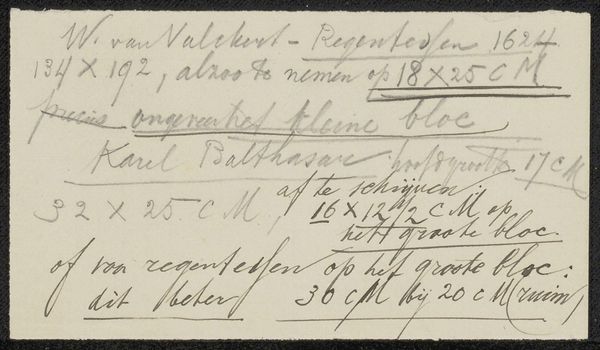 W. van Valckert - Regentessen 1624
134 X 192, alzoo te nemen op 18 X 25 c M
precies ongeveer het kleine bloc
Karel Balthasar hoofdgrootte 17 c M
32 X 25 c M, af te schrijven:
16 X 12 1/2 c M op
het groote bloc.
of voor regentessen op het groote bloc:
dit beter 30 c M bij 20 c M (ruim)